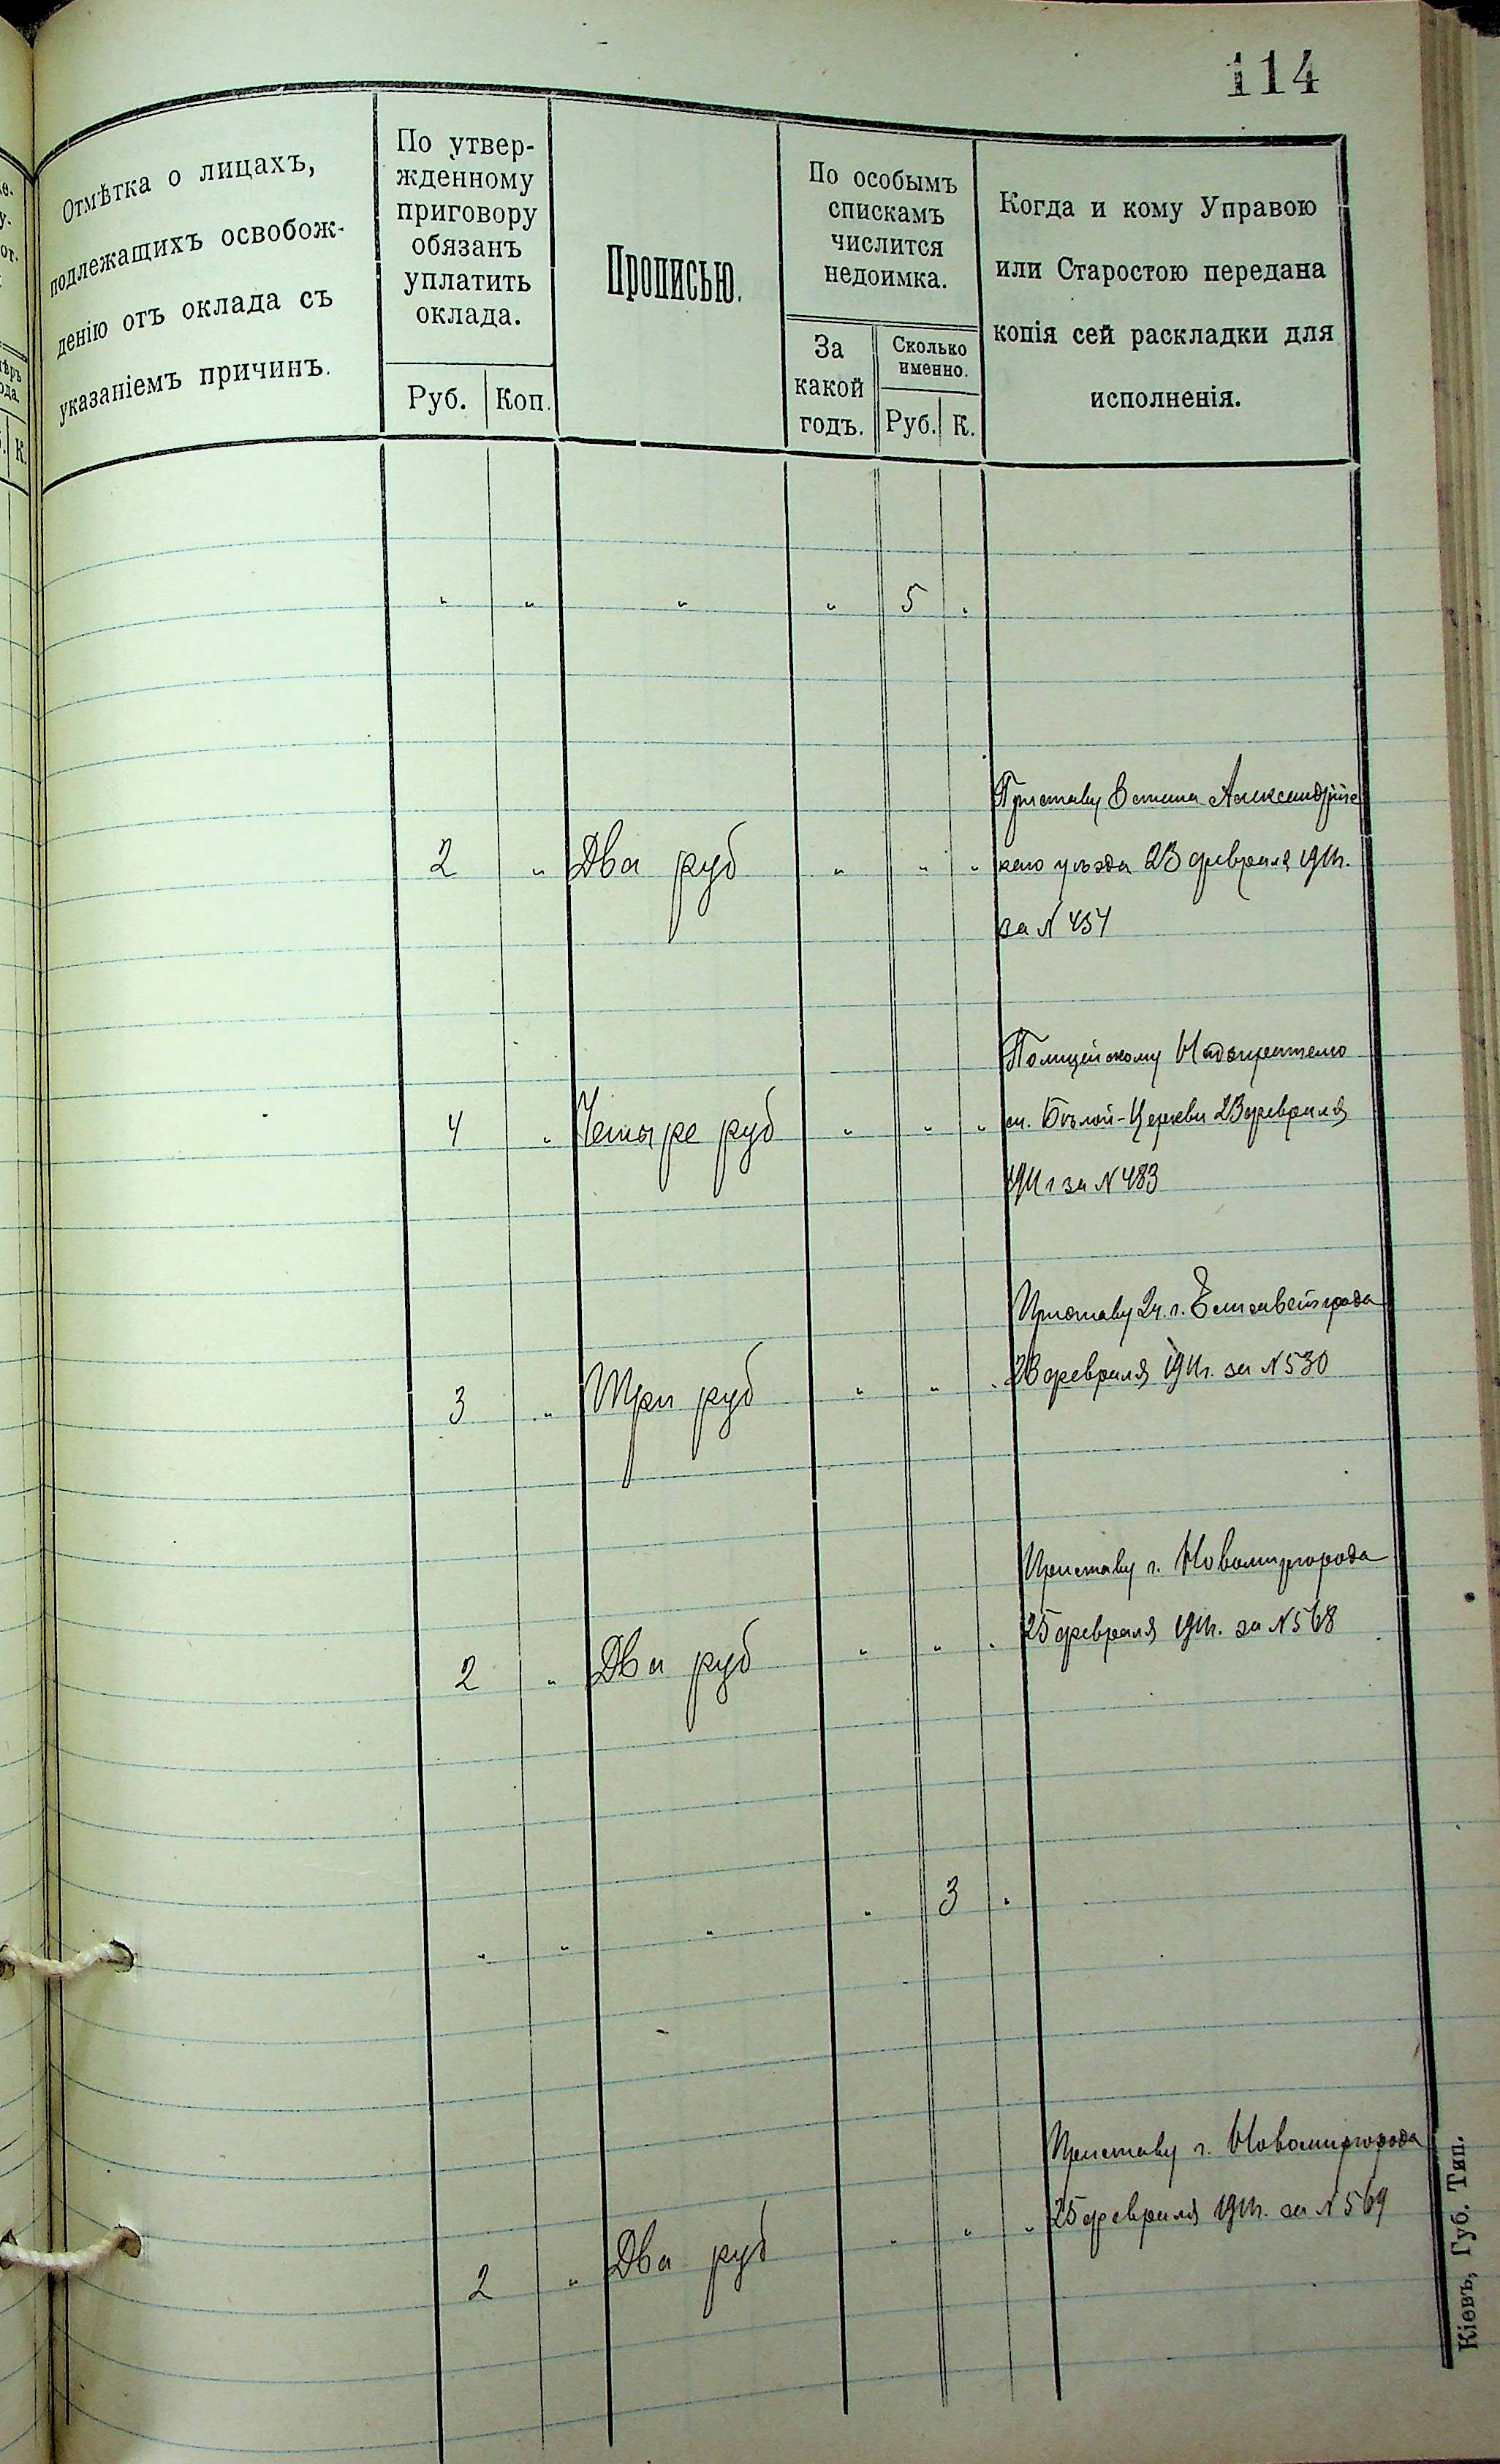 114
Отмѣтка о лицахъ,
подлежащихъ освобож-
денію отъ оклада съ
указаніемъ причинъ.
По утвер-
жденному
приговору
обязанъ
уплатить
оклада.
Руб. Коп.
Прописью.
По особымъ
спискамъ
числится
недоимка.
За
какой
годъ.
Сколько
именно.
Руб. К.
Когда и кому Управою
или Старостою передана
копія сей раскладки для
исполненія.
" " " " 5 "
Приставу 8 стана Александрійс
2 " Два руб " " " каго уѣзда 23 февраля 1911г.
за N 454
Полицейскому Надзирателю
4 " Четыре руб " " " м. Бѣлой-Церкви 23 февраля
1911 г за N 483
Приставу 2 ч. г. Елисаветграда
3 " Три руб " " " 23 февраля 1911г. за N 530
Приставу г. Новомиргорода
2 " Два руб " " " 25 февраля 1911г. за N 568
" " " " 3 "
Приставу г. Новомиргорода
2 " Два руб " " " 25 февраля 1911г. за N 569
Кіевъ, Губ. Тип.